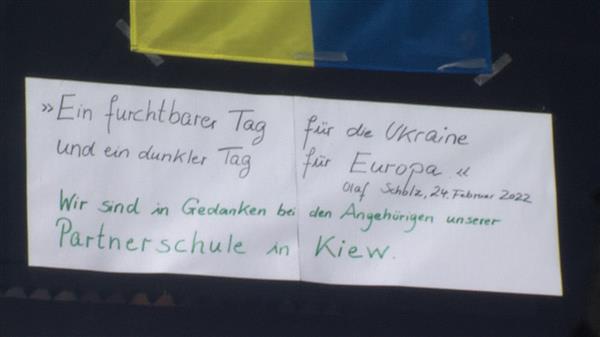 »Ein furchtbarer Tag für die Ukraine
und ein dunkler Tag für Europa.«
Olaf Scholz, 24. Februar 2022
Wir sind in Gedanken bei den Angehörigen unserer
Partnerschule in Kiew.